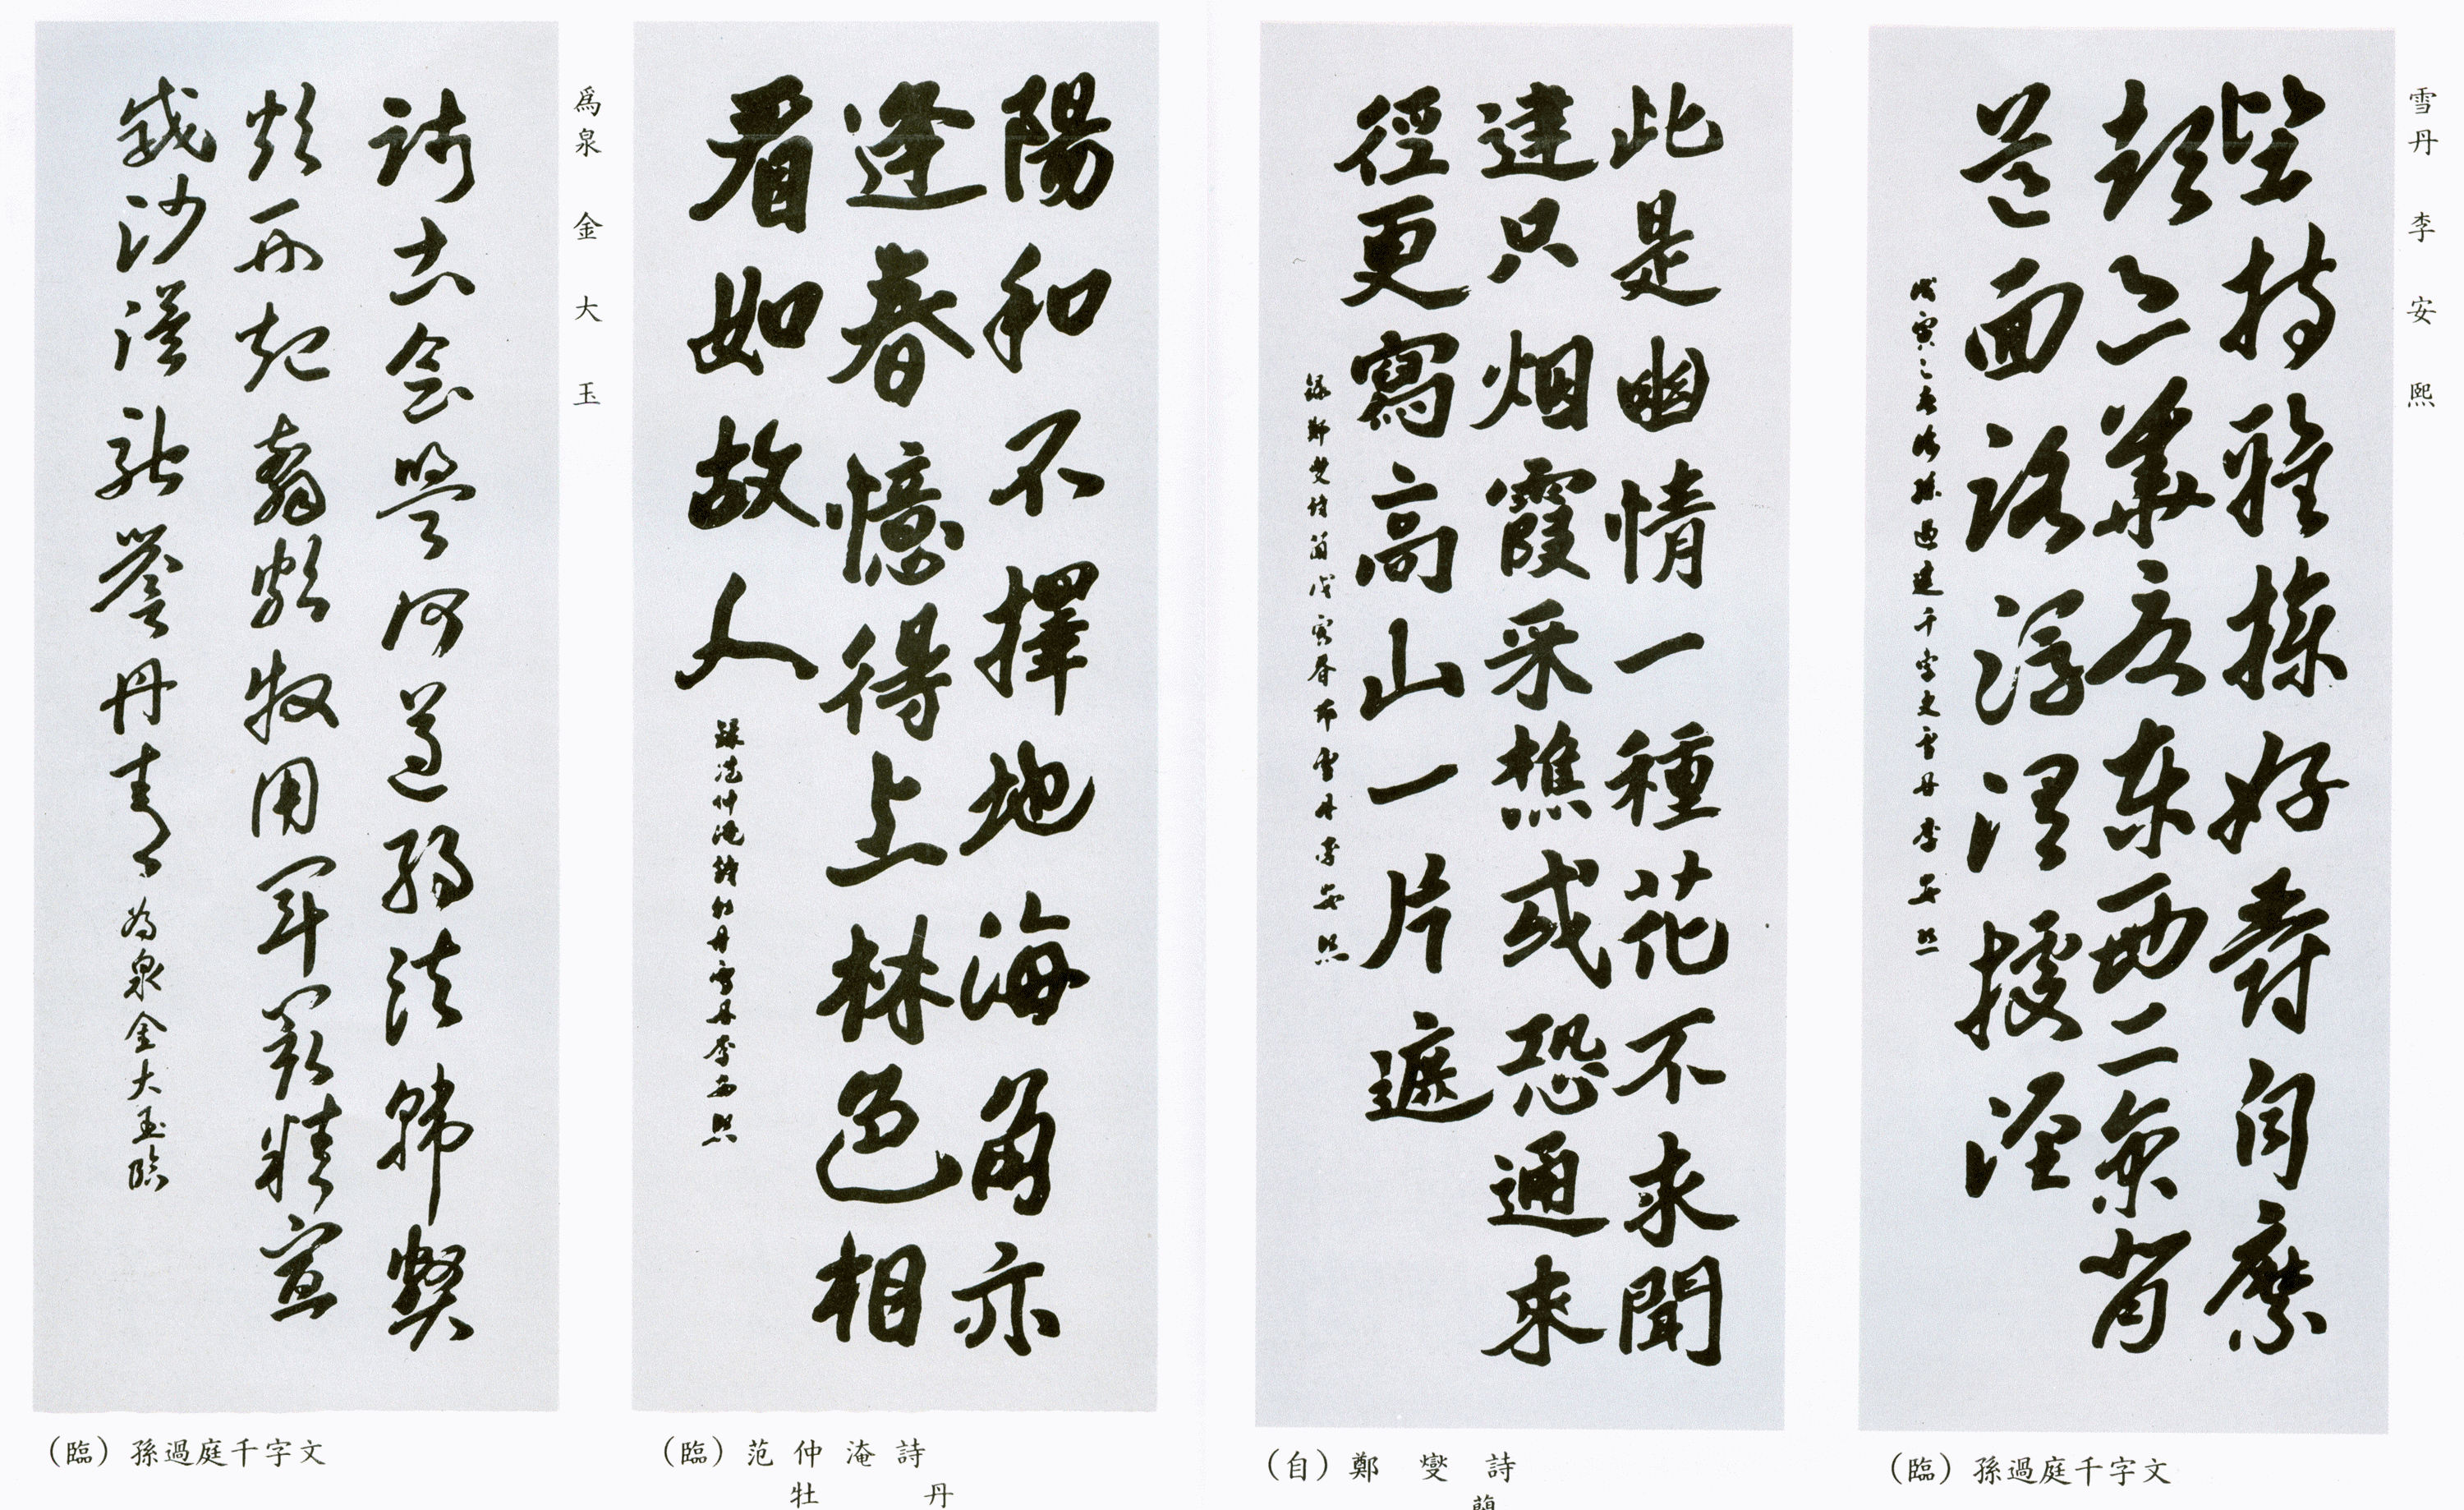 雪丹 李安熙
堅持雅操好爵自縻
都邑華夏東西二京背
芒面洛浮渭據涇
戊寅之春臨孫過庭千字文雪丹李安熙
(臨) 孫過庭千字文
此是幽情一種花不求聞
達只烟霞采樵或恐通來
徑更寫高山一片遮
錄鄭燮詩蘭戊寅春節雪丹李安熙
(自) 鄭燮詩
蘭
陽和不擇地海角亦
逢春憶得上林色相
看如故人
錄范仲淹詩牡丹雪丹李安熙
(臨) 范仲淹詩
牡丹
爲泉 金大玉
踐土會盟何遵約法韓弊
煩刑起翦頗牧用軍最精宣
威沙漠馳譽丹青
為泉金大玉臨
(臨) 孫過庭千字文